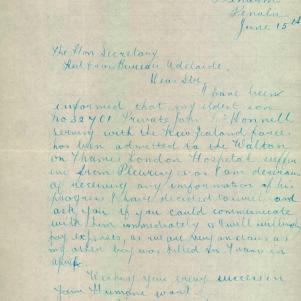 Penola
June 15th
The Hon Secretary
Red X Bureau Adelaide.
Dear Sir,
I have been
informed that my eldest son
Private John
serving with the New Zealand forces
has been admitted to the Walton
on Thames London Hospital suffer
ing from Pleurisy & as I am desirous
of receiving any information of his
progress I have decided to and
ask you if you could communicate
with him immediately & I will willingly
pay expenses, as we are very anxious as
my other boy was killed in France in
April
Wishing you every success in
your Humane work